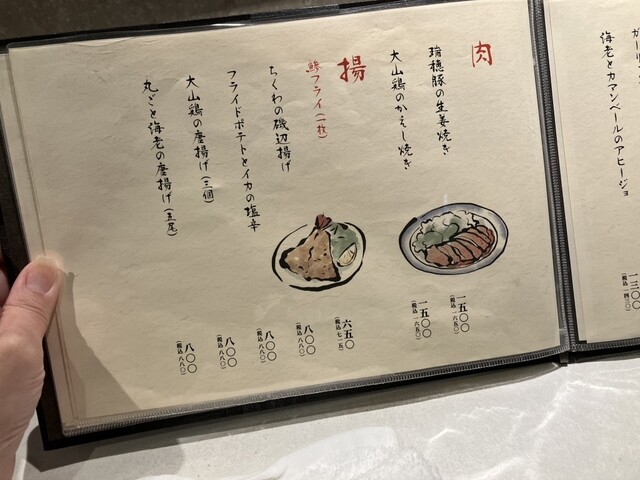 海老とカマンベールのアヒージョ
一三〇〇
(税込 一四三〇)
肉
瑞穂豚の生姜焼き
一五〇〇
(税込 一六五〇)
大山鶏のかえし焼き
一五〇〇
(税込 一六五〇)
揚
鯵フライ(一枚)
六五〇
(税込 七一五)
ちくわの磯辺揚げ
八〇〇
(税込 八八〇)
フライドポテトとイカの塩辛
八〇〇
(税込 八八〇)
大山鶏の唐揚げ(三個)
八〇〇
(税込 八八〇)
丸ごと海老の唐揚げ(五尾)
八〇〇
(税込 八八〇)